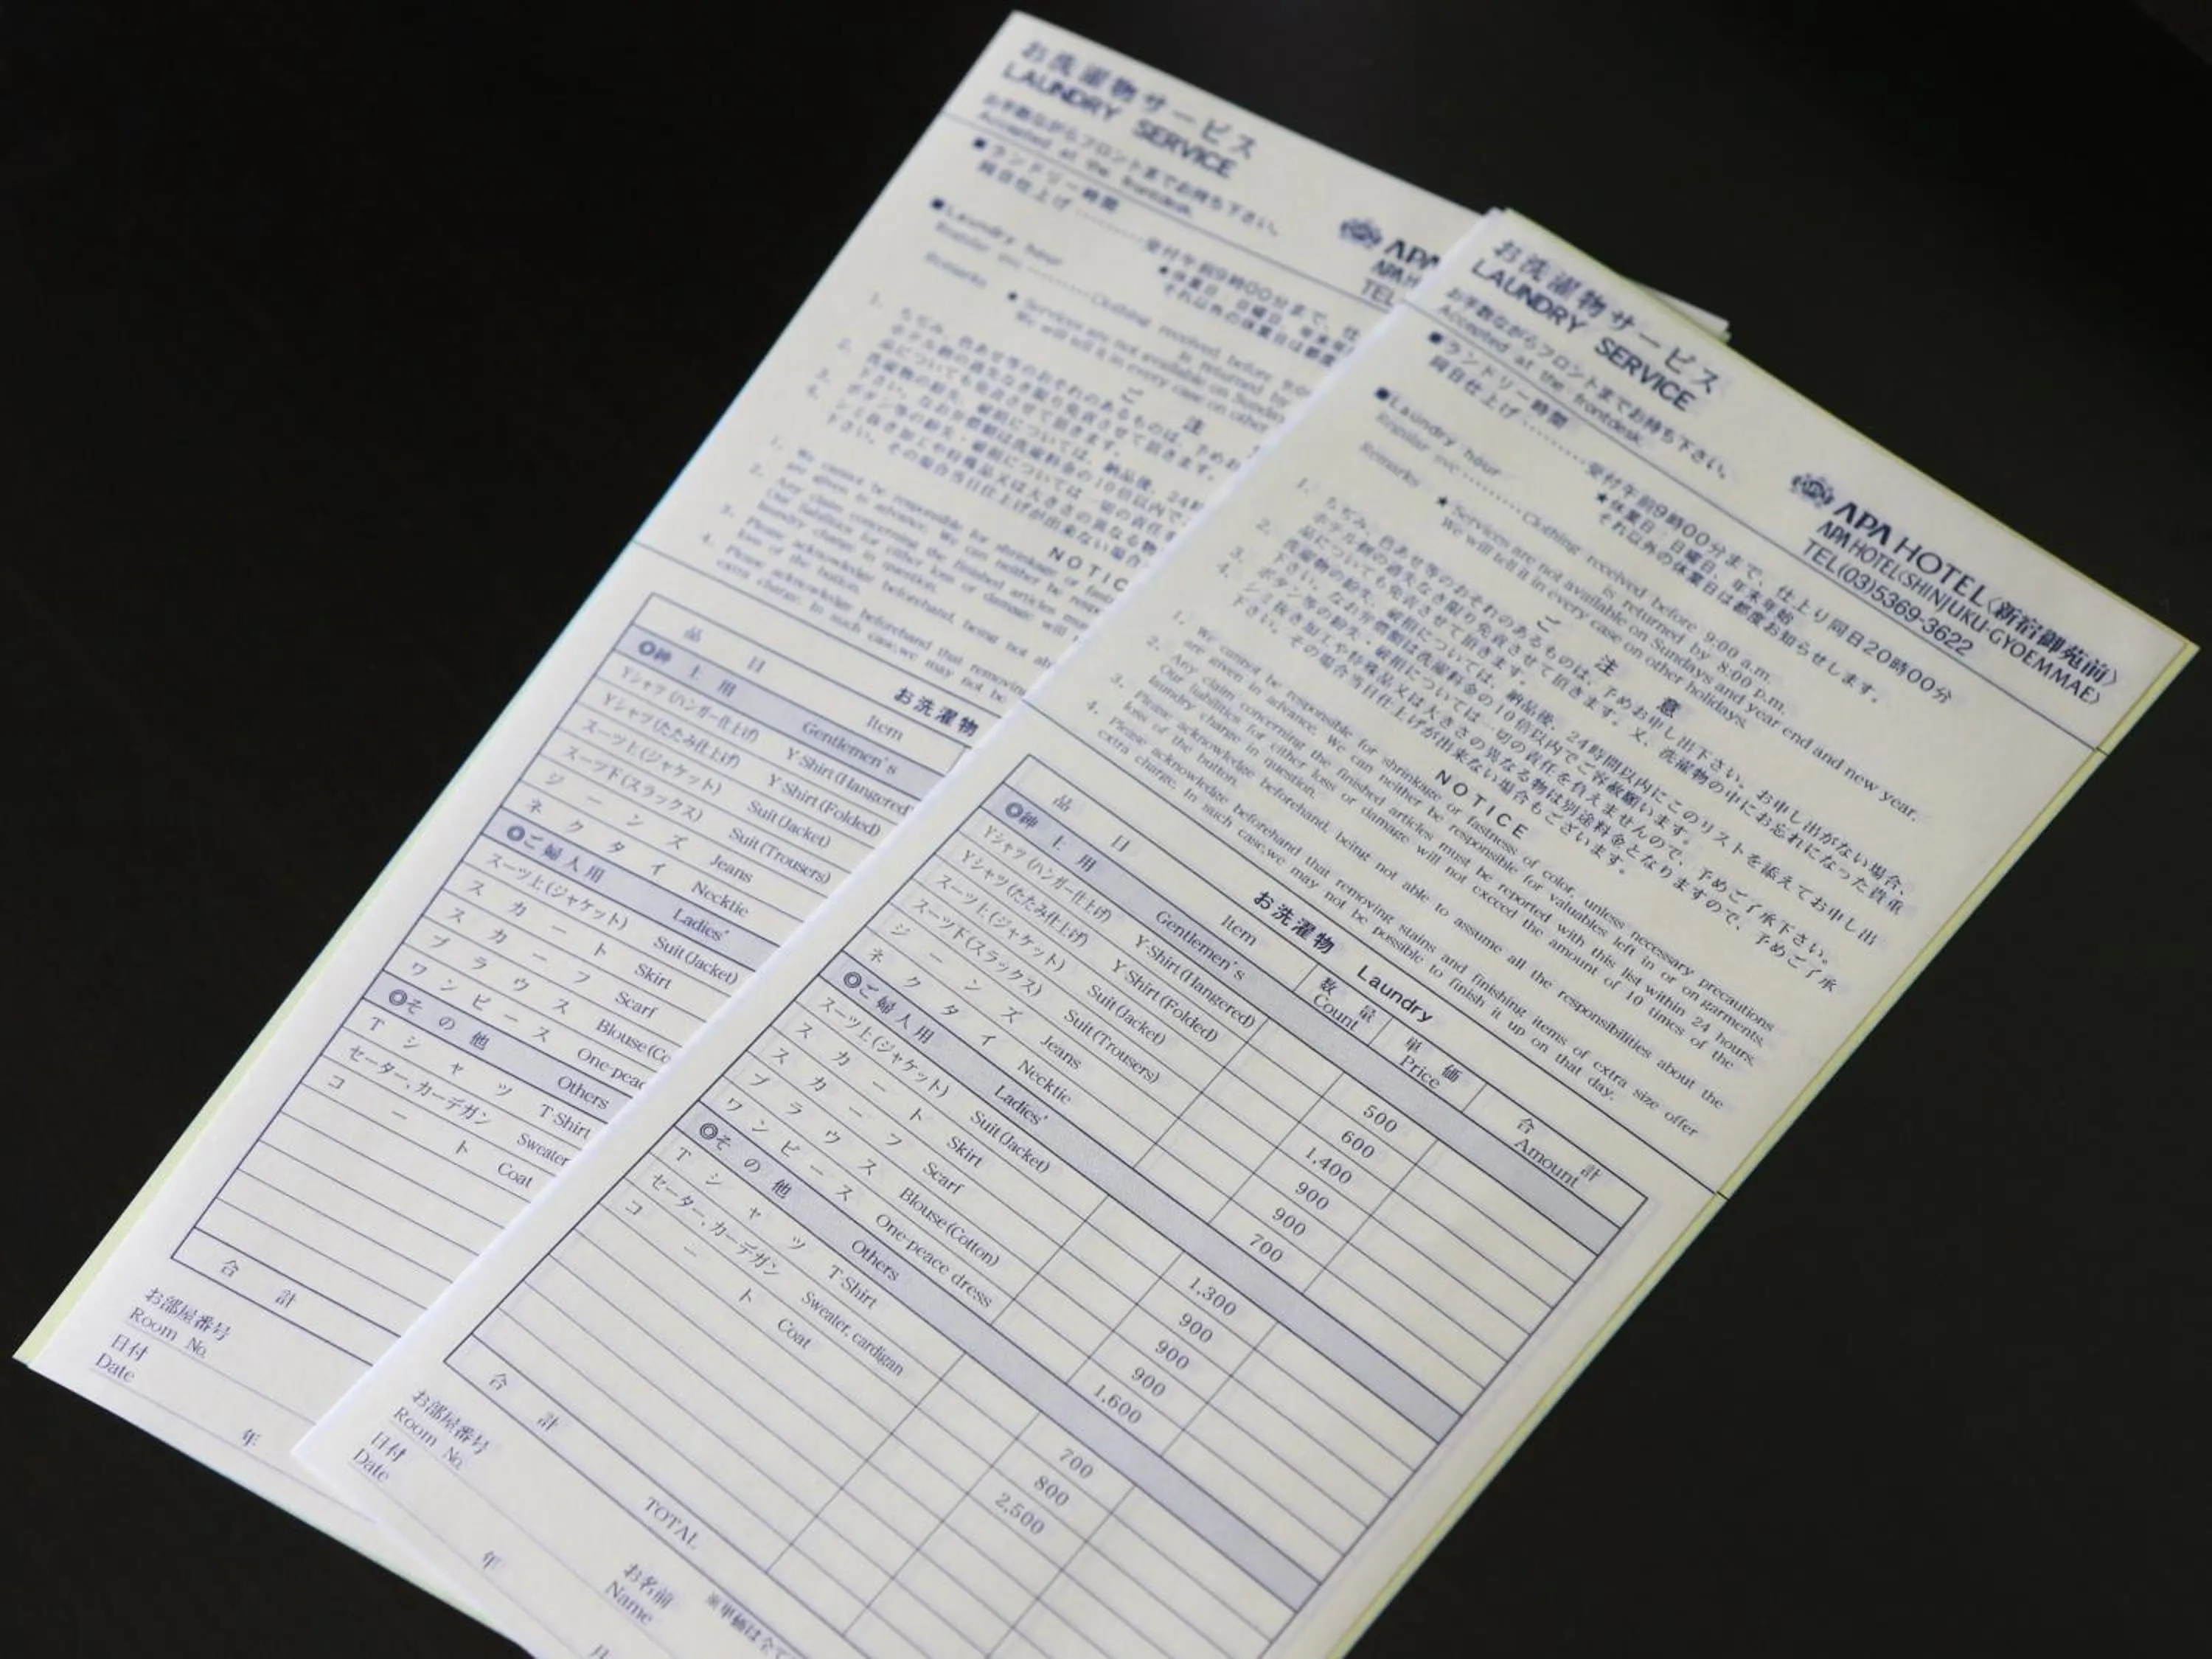 お洗濯物サービス
LAUNDRY SERVICE
お手数ながらフロントまでお持ち下さい。
Accepted at the frontdesk.
■ランドリー時間
同日仕上げ
■Laundry hour
Regular svc.
Remarks
APA
TEL
NOTIC
お洗濯物
品目 Item
◎紳士用 Gentlemen's
Yシャツ(ハンガー仕上げ) Y-Shirt(Hangered)
Yシャツ(たたみ仕上げ) Y-Shirt(Folded)
スーツ上(ジャケット) Suit(Jacket)
スーツ下(スラックス) Suit(Trousers)
ジーンズ Jeans
ネクタイ Necktie
◎ご婦人用 Ladies'
スーツ上(ジャケット) Suit(Jacket)
スカート Skirt
スカーフ Scarf
ブラウス Blouse(Co
ワンピース One-peac
◎その他 Others
Tシャツ T-Shirt
セーター、カーデガン Sweater
コート Coat
合計
お部屋番号
Room No.
日付
Date
年
お洗濯物サービス
LAUNDRY SERVICE
お手数ながらフロントまでお持ち下さい。
Accepted at the frontdesk.
APA HOTEL〈新宿御苑前〉
APA HOTEL〈SHINJUKU-GYOEMMAE〉
TEL(03)5369-3622
■ランドリー時間
同日仕上げ…………受付午前9時00分まで、仕上り同日20時00分
★休業日 日曜日、年末年始
それ以外の休業日は都度お知らせします。
■Laundry hour
Regular svc.…………Clothing received before 9:00 a.m.
is returned by 8:00 p.m.
Remarks ★Services are not available on Sundays and year end and new year.
We will tell it in every case on other holidays.
ご注意
1. ちぢみ、色あせ等のおそれのあるものは、予めお申し出下さい。お申し出がない場合、
ホテル側の過失なき限り免責させて頂きます。又、洗濯物の中にお忘れになった貴重
品についても免責させて頂きます。
2. 洗濯物の紛失、破損については、納品後、24時間以内にこのリストを添えてお申し出
下さい。なお弁償額は洗濯料金の10倍以内でご容赦願います。
3. ボタン等の紛失・破損については一切の責任を負えませんので、予めご了承下さい。
4. シミ抜き加工や特殊品又は大きさの異なる物は別途料金となりますので、予めご了承
下さい。その場合当日仕上げが出来ない場合もございます。
NOTICE
1. We cannot be responsible for shrinkage or fastness of color, unless necessary precautions
are given in advance. We can neither be responsible for valuables left in or on garments.
2. Any claim concerning the finished articles must be reported with this list within 24 hours.
Our liabilities for either loss or damage will not exceed the amount of 10 times of the
laundry charge in question.
3. Please acknowledge beforehand, being not able to assume all the responsibilities about the
loss of the button.
4. Please acknowledge beforehand that removing stains and finishing items of extra size offer
extra charge. In such case,we may not be possible to finish it up on that day.
お洗濯物 Laundry
品目 Item 数量 Count 単価 Price 合計 Amount
◎紳士用 Gentlemen's
Yシャツ(ハンガー仕上げ) Y-Shirt(Hangered) 500
Yシャツ(たたみ仕上げ) Y-Shirt(Folded) 600
スーツ上(ジャケット) Suit(Jacket) 1,400
スーツ下(スラックス) Suit(Trousers) 900
ジーンズ Jeans 900
ネクタイ Necktie 700
◎ご婦人用 Ladies'
スーツ上(ジャケット) Suit(Jacket) 1,300
スカート Skirt 900
スカーフ Scarf 900
ブラウス Blouse(Cotton) 900
ワンピース One-peace dress 1,600
◎その他 Others
Tシャツ T-Shirt 700
セーター、カーデガン Sweater, cardigan 800
コート Coat 2,500
合計 TOTAL
※単価は全て
お部屋番号
Room No.
お名前
Name
日付
Date
年 月